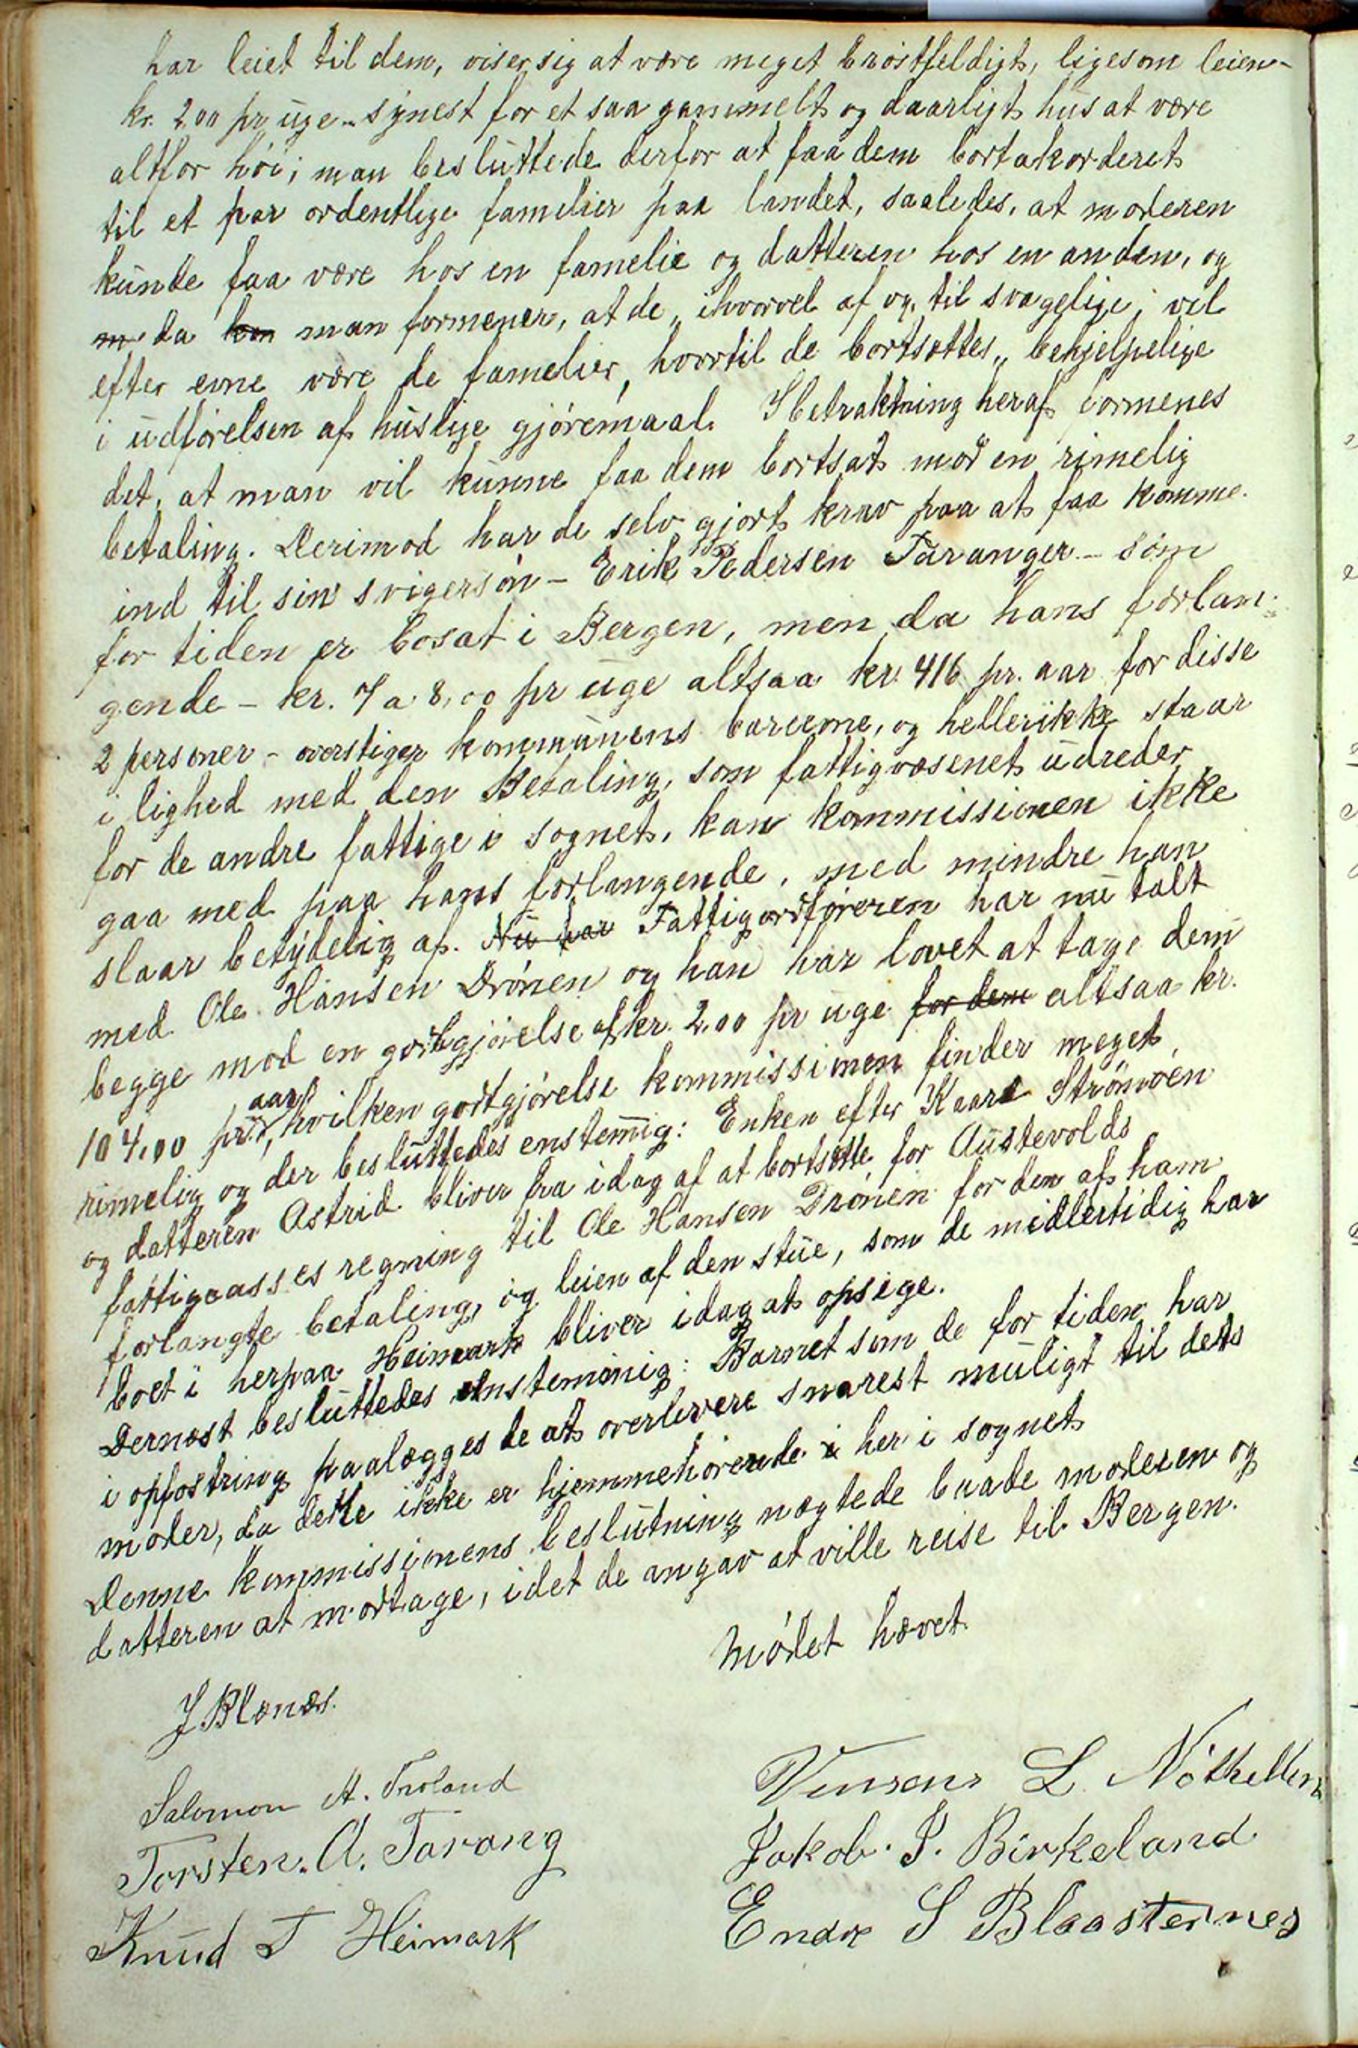 har leiet til dem, viser sig at være meget brøstfeldigt, ligesom leien -
kr. 2.00 pr uge - synest for et saa gammelt og daarligt hus at være
altfor høi; man besluttede derfor at faa dem bortakorderet
til et par ordentlige familier paa landet, saaledes, at moderen
kunde faa være hos en famelie og datteren hos en anden, og
m da han man formener, at de, ihvorvel af og til svagelige, vil
efter evne være de famelier, hvortil de bortsættes, behjelpelige
i udførelsen af huslige gjøremaal. I betraktning heraf formenes
det, at man vil kunne faa dem bortsat mod en rimelig
betaling. Derimod har de selv gjort krav paa at faa komme
ind til sin svigersøn - Erik Pedersen Taranger - som
for tiden er bosat i Bergen, men da hans forlan-
gende - kr. 7 a 8,00 pr uge altsaa kr. 416 pr. aar for disse
2 personer - overstiger kommunens bæreevne, og heller ikke staar
i lighed med den Betaling, som fattigvæsenet udreder
for de andre fattige i sognet, kan kommissionen ikke
gaa med paa hans forlangende, med mindre han
slaar betydelig af. Nu har Fattigordføreren har nu talt
med Ole Hansen Drønen og han har lovet at tage dem
begge mod en godtgjørelse af kr. 2.00 pr uge for dem altsaa kr.
104,00 pr. aar, hvilken godtgjørelse kommissionen finder meget
rimelig og der besluttedes enstemig: Enken efter Kaare Strømøen
og datteren Astrid bliver fra idag af at bortsætte for Austevolds
fattigcasses regning til Ole Hansen Drønen for den af ham
forlangte betaling, og leien af den stue, som de midlertidig har
boet i herpaa Heimark bliver idag at opsige.
Dernæst besluttedes enstemmig: Barnet som de for tiden har
i opfostring paalægges de at overlevere snarest muligt til dets
moder, da dette ikke er hjemmehørende i her i sognet
Denne kommissionens beslutning nægtede baade moderen og
datteren at modtage, idet de angav at ville reise til Bergen.
Mødet hævet
J Blænæs.
Salomon A. Troland
Torsten. A. Tarang
Knud T Heimark
Vinsens L. Møkelken
Jakob. J. Birkeland
Endre S Blaasternes